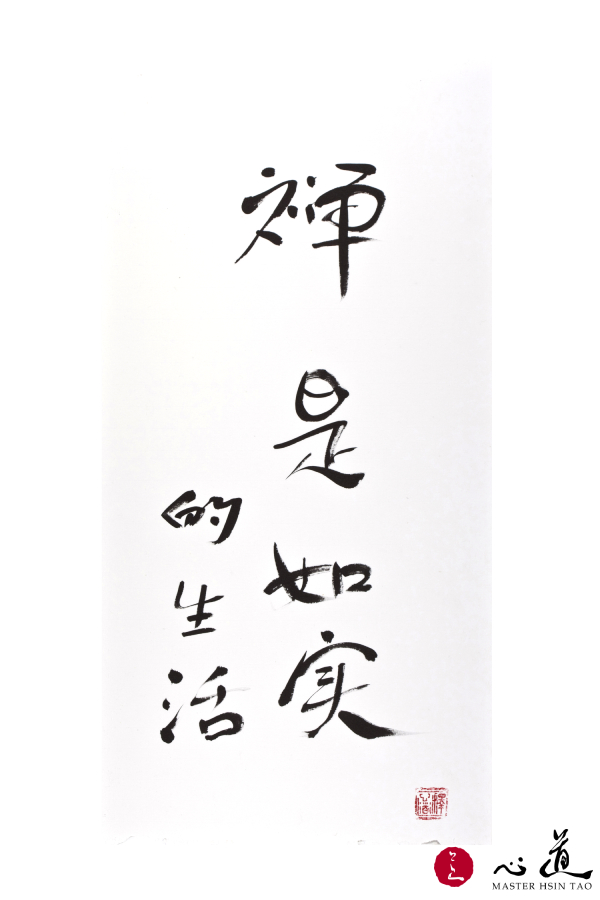 禅是如实
的生活
心道
MASTER HSIN TAO